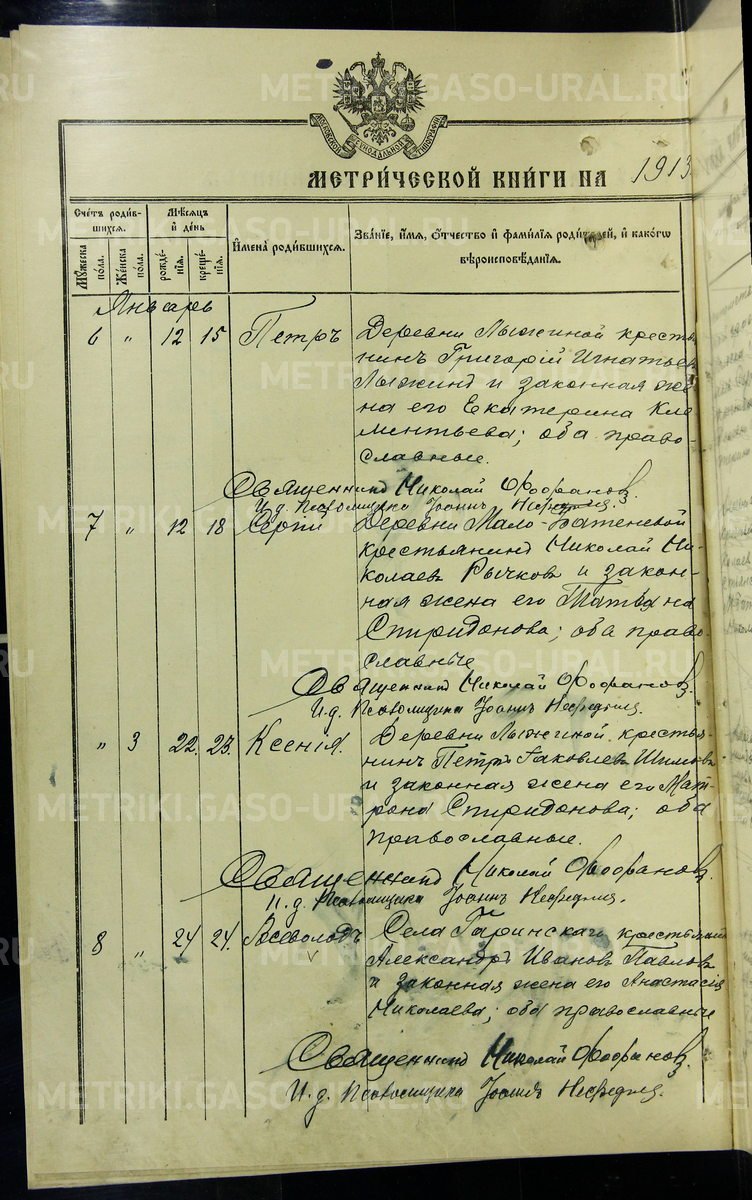 МОСКОВСКОЙ СѴНОДАЛЬНОЙ ТИПОГРАФІИ
МЕТРИ́ЧЕСКОЙ КНИ́ГИ НА 1913
Сче́тъ роди́вшихся.
Мѣ́сяцъ и̑ день
Мꙋ́жеска по́ла.
Же́нска по́ла.
рожде́нїѧ.
креще́нїѧ.
И̑мена̀ роди́вшихсѧ.
Зва́нїе, и́мѧ, ѻ҆́тчество и̑ фами́лїѧ роди́телей, и̑ како́гѡ
вѣроисповѣ́данїѧ.
Январь
6 " 12 15 Петръ Деревни Лыжиной кресть
нинъ Григорій Игнатьев
Лыжинъ и законная же
на его Екатерина Кле
ментьева; оба право-
славные.
Священникъ Николай Фофанов.
И. д. Псаломщика Іоаннъ
7 " 12 18 Сергій Деревни Мало-Баженевой
крестьянинъ Николай Ни-
колаев Рычков и закон-
ная жена его Татьяна
Спиридонова; оба право-
славные
Священникъ Николай Фофанов.
И. д. Псаломщика Іоаннъ
" 3 22. 23. Ксенія. Деревни Лыжиной крестья-
нинъ Петръ Яковлевъ
и законная жена его Мат
рона Спиридонова; оба
православные.
Священникъ Николай Фофанов.
И. д. Псаломщика Іоаннъ
8 " 24 24. Всеволодъ Села Гаринскаго крестьянин
Александръ Иванов Павлов
и законная жена его Анастасія
Николаева; оба православные
Священникъ Николай Фофанов.
И. д. Псаломщика Іоаннъ
METRIKI.GASO-URAL.RU